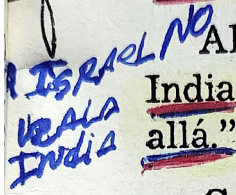 A ISRAEL NO
VEALA
INDIA
Al
India
allá."